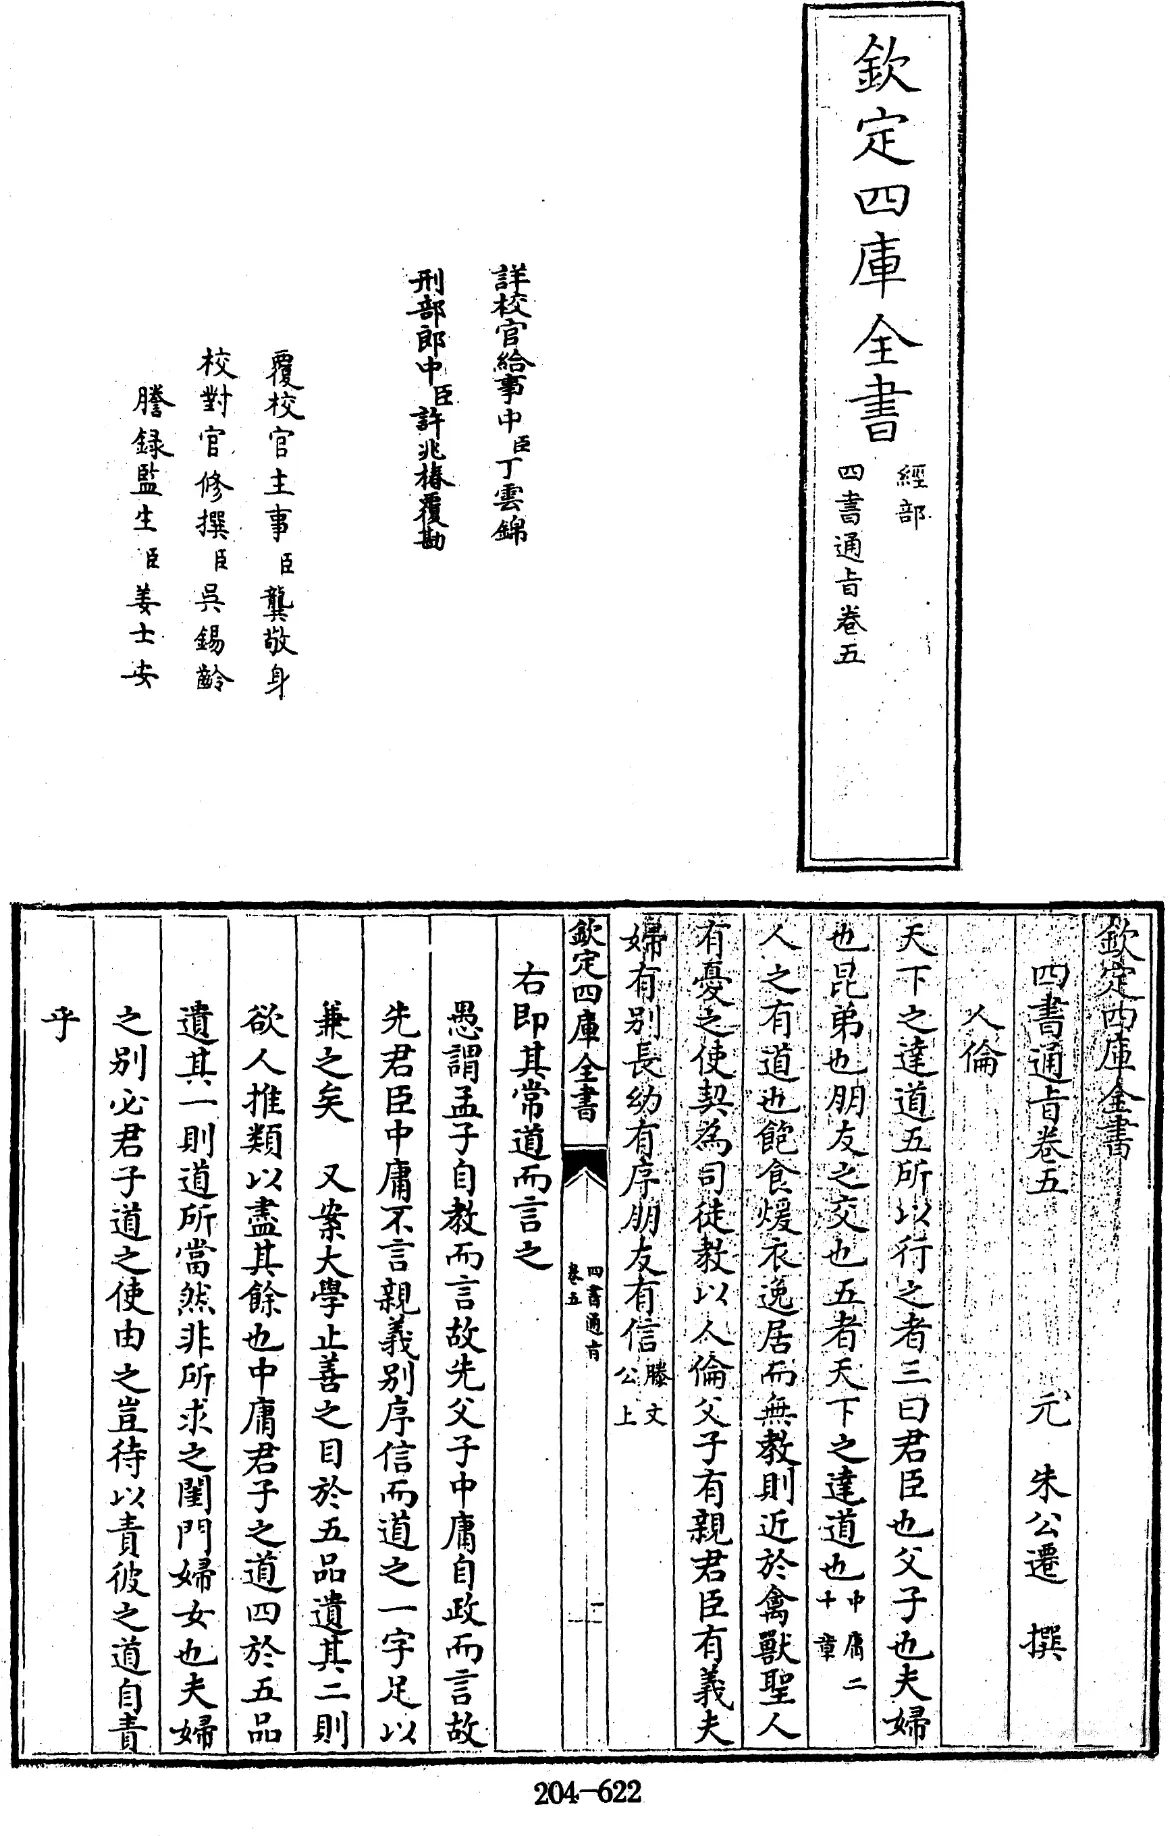 欽定四庫全書
經部
四書通旨卷五
詳校官給事中臣丁雲錦
刑部郎中臣許兆椿覆勘
覆校官主事臣龔敬身
校對官修撰臣吳錫齡
謄録監生臣姜士安
欽定四庫全書
四書通旨卷五
元 朱公遷 撰
人倫
天下之達道五所以行之者三曰君臣也父子也夫婦
也昆弟也朋友之交也五者天下之達道也中庸二十章
人之有道也飽食煖衣逸居而無教則近於禽獸聖人
有憂之使契為司徒教以人倫父子有親君臣有義夫
婦有別長幼有序朋友有信滕文公上
欽定四庫全書
四書通旨
卷五
一
右即其常道而言之
愚謂孟子自教而言故先父子中庸自政而言故
先君臣中庸不言親義別序信而道之一字足以
兼之矣 又案大學止善之目於五品遺其二則
欲人推類以盡其餘也中庸君子之道四於五品
遺其一則道所當然非所求之閨門婦女也夫婦
之別必君子道之使由之豈待以責彼之道自責
乎
204-622